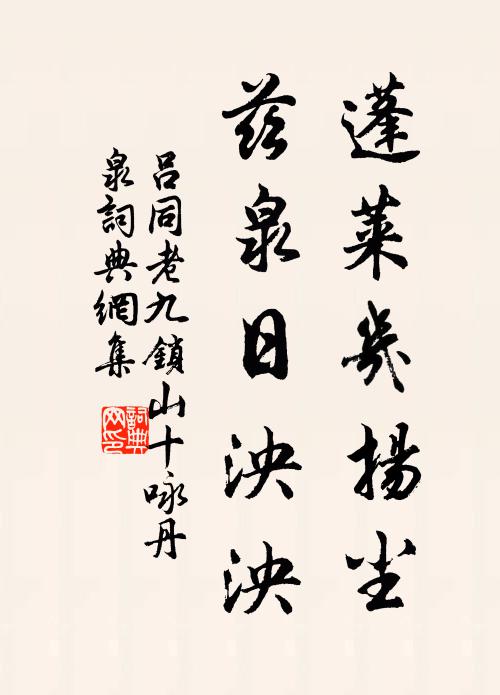 蓬萊幾揚尘
茲泉日泱泱
呂同老九鎖山十咏丹
泉詞典網集
詞典
网印